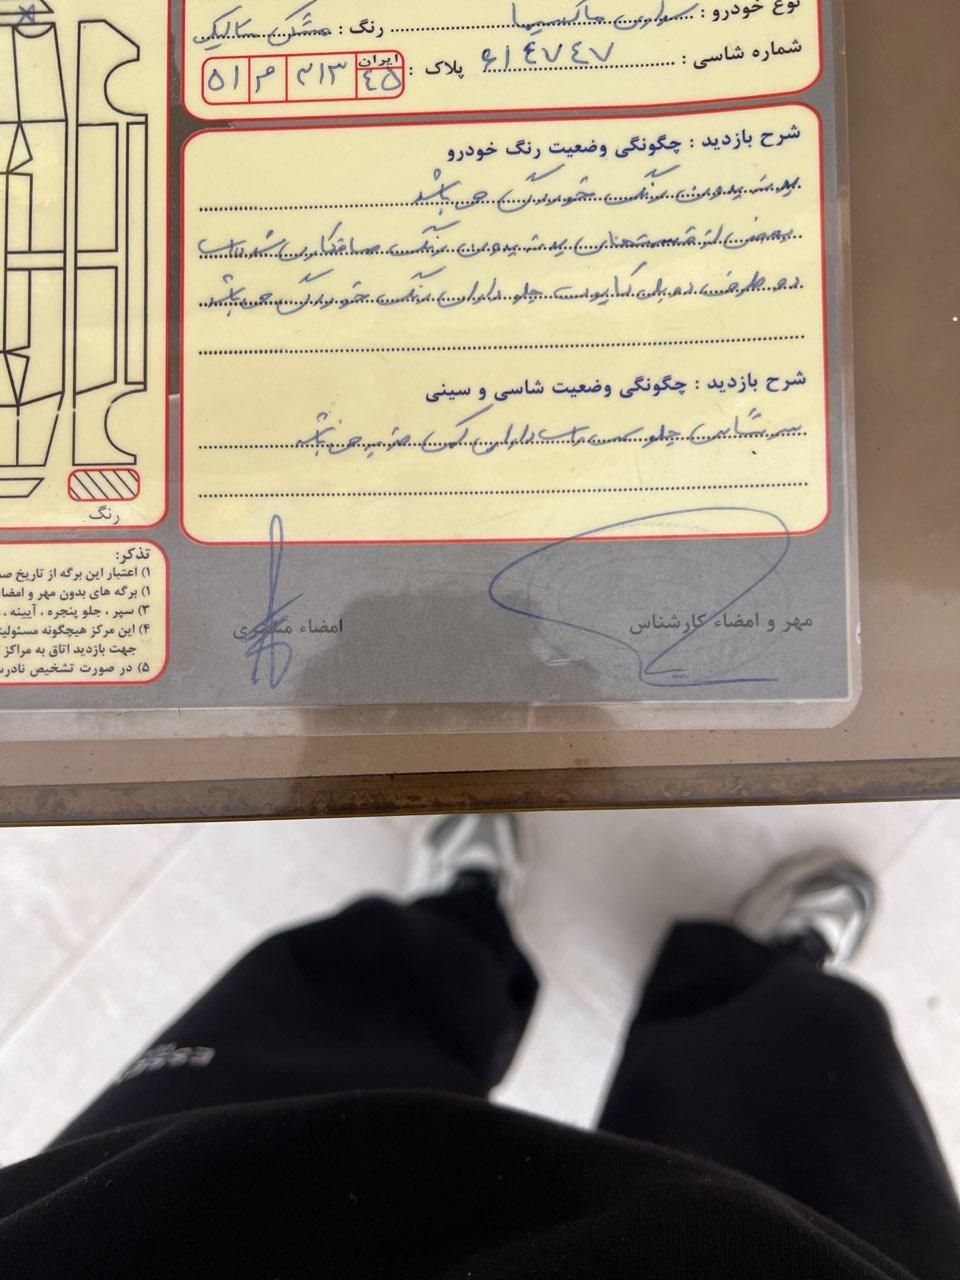 نوع خودرو : سواری ماکسیما رنگ : مشکی متالیک
شماره شاسی : ۶۱۴۷۴۷ پلاک : ۵۱ م ۳۱۳ ایران ۴۵
شرح بازدید : چگونگی وضعیت رنگ خودرو
بدنه بدون رنگ خوردگی می باشد
بعضی از قسمتهای بدنه بدون رنگ صافکاری شده است
دو طرف دوبل کاپوت جلو دارای رنگ خوردگی می باشد
شرح بازدید : چگونگی وضعیت شاسی و سینی
سر شاسی جلو سمت راست دارای کمی ضربه می باشد
مهر و امضاء کارشناس
امضاء مشتری
رنگ
تذکر:
۱) اعتبار این برگه از تاریخ
۱) برگه های بدون مهر و امضا
۳) سپر ، جلو پنجره ، آیینه ،
۴) این مرکز هیچگونه مسئولیت
جهت بازدید اتاق به مراکز
۵) در صورت تشخیص